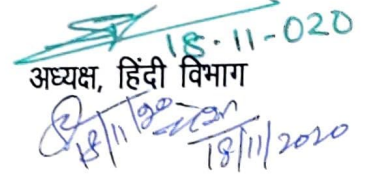 18-11-020
अध्यक्ष, हिंदी विभाग
18/11/20
18/11/2020